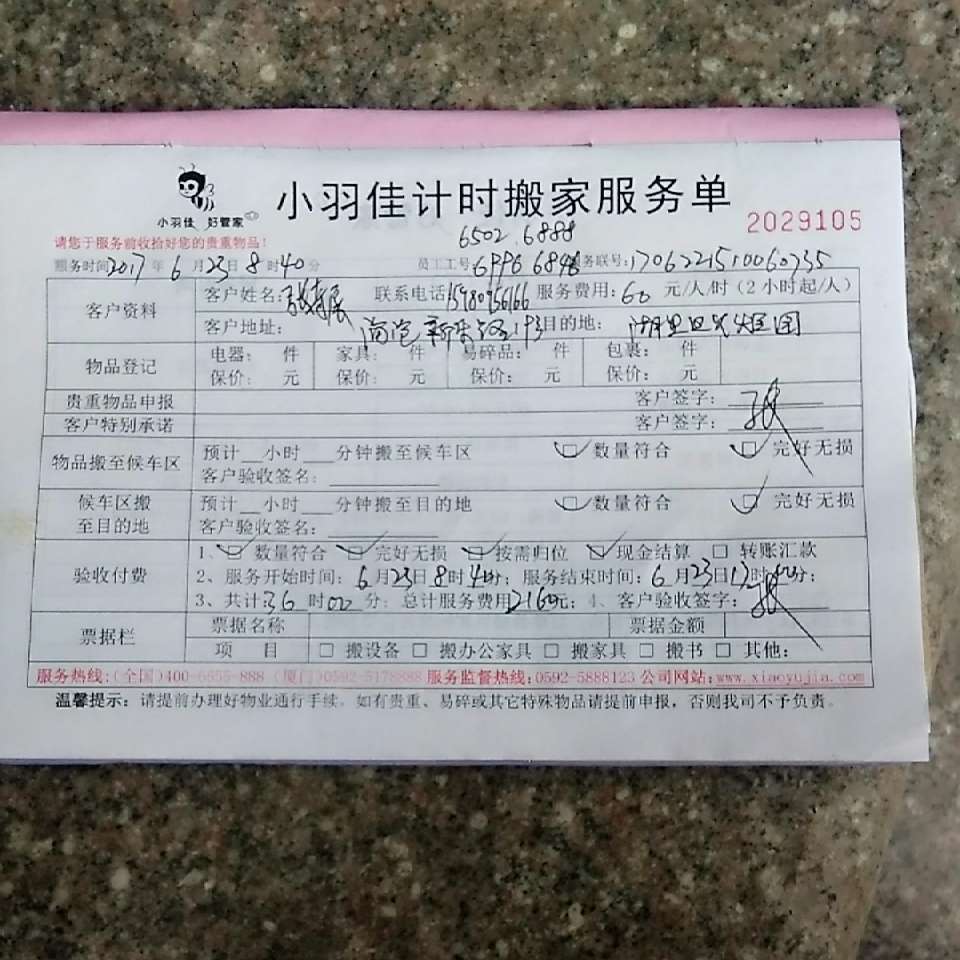 小羽佳 好管家
小羽佳计时搬家服务单
2029105
请您于服务前收拾好您的贵重物品!
6502 6888
服务时间2017年6月23日8时40分 员工工号:6996 6898 务联号:1706221510060735
客户资料
客户姓名: 联系电话 服务费用:60 元/人/时(2小时起/人)
客户地址: 目的地:
物品登记
电器: 件 家具: 件 易碎品: 件 包裹: 件
保价: 元 保价: 元 保价: 元 保价: 元
贵重物品申报 客户签字:
客户特别承诺 客户签字: 张
物品搬至候车区
预计__小时___分钟搬至候车区 数量符合 完好无损
客户验收签名:
候车区搬至目的地
预计__小时___分钟搬至目的地 数量符合 完好无损
客户验收签名:
验收付费
1、数量符合 完好无损 按需归位 现金结算 转账汇款
2、服务开始时间:6月23日8时40分;服务结束时间:6月23日时分;
3、共计:36时00分;总计服务费用2160元;4、客户验收签字:张
票据栏
票据名称 票据金额
项 目 搬设备 搬办公家具 搬家具 搬书 其他:
服务热线:(全国)400-6555-888 (厦门)0592-5178888 服务监督热线:0592-5888123 公司网站:www.xiaoyujia.com
温馨提示:请提前办理好物业通行手续。如有贵重、易碎或其它特殊物品请提前申报,否则我司不予负责。